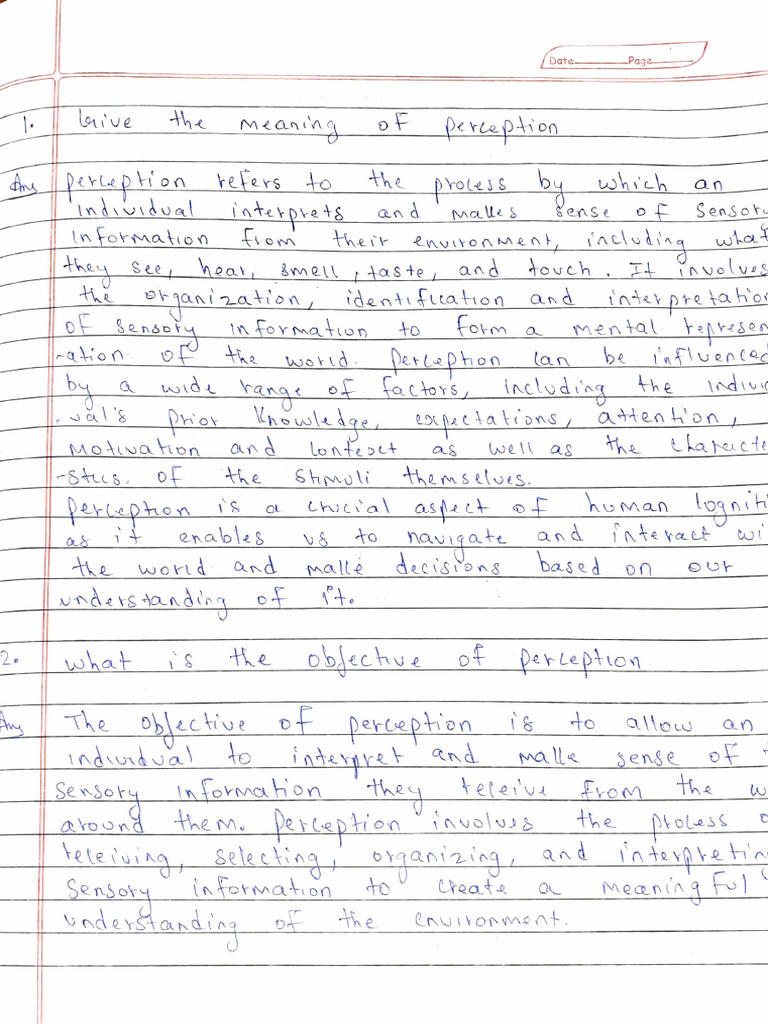 Date Page
1. Give the meaning of perception
Ans perception refers to the process by which an
individual interprets and makes sense of sensory
information from their environment, including what
they see, hear, smell, taste, and touch. It involves
the organization, identification and interpretation
of sensory information to form a mental represen
-ation of the world. perception can be influenced
by a wide range of factors, including the individ
-ual's prior knowledge, expectations, attention,
motivation and context as well as the characte
-stics. of the stimuli themselves.
perception is a crucial aspect of human cogniti
as it enables us to navigate and interact wi
the world and make decisions based on our
understanding of it.
2. what is the objective of perception
Ans The objective of perception is to allow an
individual to interpret and make sense of t
sensory information they receive from the w
around them. perception involves the process o
receiving, selecting, organizing, and interpreting
sensory information to create a meaningful
understanding of the environment.